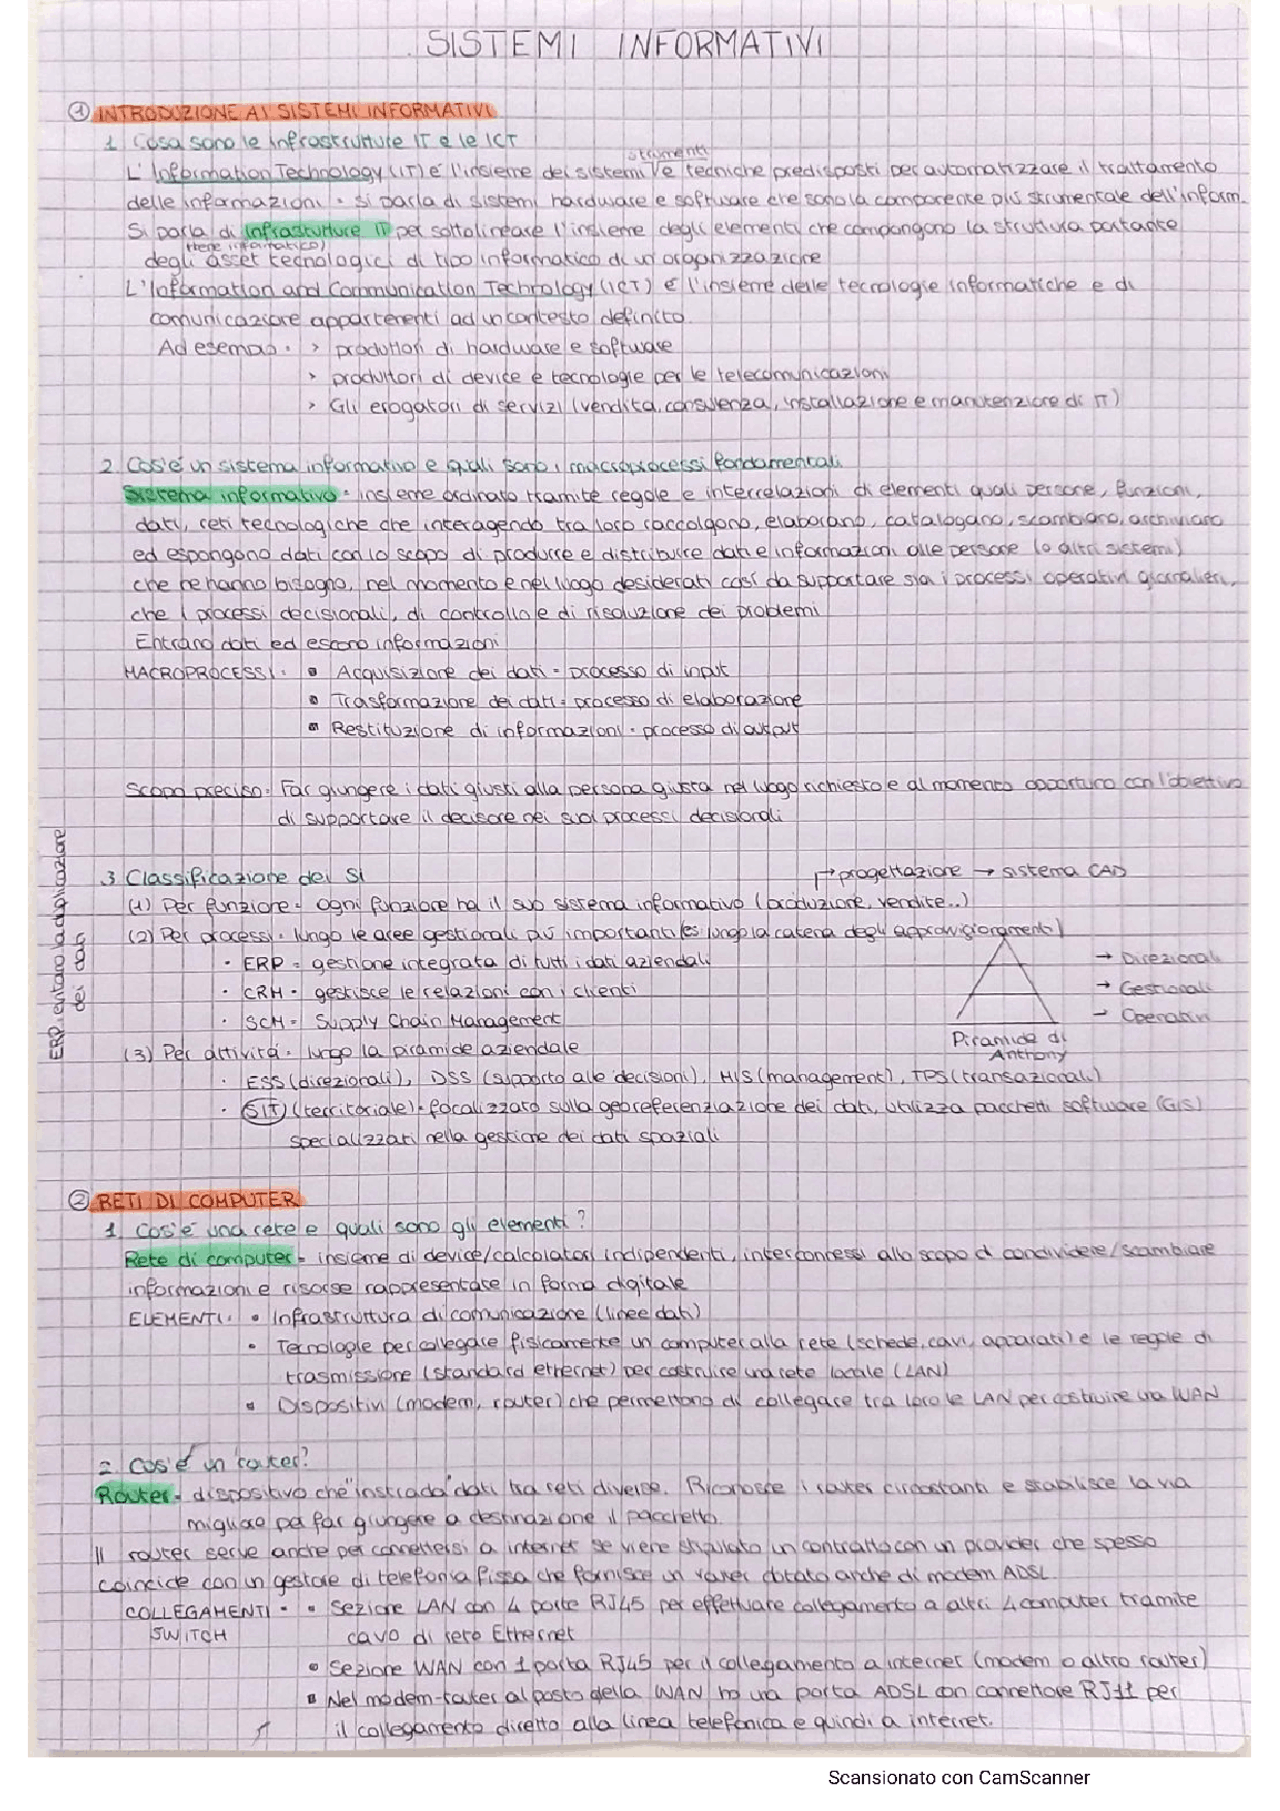 SISTEMI INFORMATIVI
① INTRODUZIONE AI SISTEMI INFORMATIVI
1 Cosa sono le infrastrutture IT e le ICT
strumenti
L'Information Technology (IT) è l'insieme dei sistemi / e tecniche predisposti per automatizzare il trattamento
delle informazioni. Si parla di sistemi hardware e software che sono la componente più strumentale dell'inform.
Si parla di infrastrutture IT per sottolineare l'insieme degli elementi che compongono la struttura portante
(bene informatico)
degli asset tecnologici di tipo informatico di un'organizzazione
L'Information and Communication Technology (ICT) è l'insieme delle tecnologie informatiche e di
comunicazione appartenenti ad un contesto definito.
Ad esempio: > produttori di hardware e software
> produttori di device e tecnologie per le telecomunicazioni
> Gli erogatori di servizi (vendita, consulenza, installazione e manutenzione di IT)
2 Cos'è un sistema informativo e quali sono i macroprocessi fondamentali
Sistema informativo = insieme ordinato tramite regole e interrelazioni di elementi quali persone, funzioni,
dati, reti tecnologiche che interagendo tra loro raccolgono, elaborano, catalogano, scambiano, archiviano
ed espongono dati con lo scopo di produrre e distribuire dati e informazioni alle persone (o altri sistemi)
che ne hanno bisogno, nel momento e nel luogo desiderati così da supportare sia i processi operativi giornalieri,
che i processi decisionali, di controllo e di risoluzione dei problemi
Entrano dati ed escono informazioni
MACROPROCESSI: • Acquisizione dei dati = processo di input
• Trasformazione dei dati = processo di elaborazione
• Restituzione di informazioni = processo di output
Scopo preciso: Far giungere i dati giusti alla persona giusta nel luogo richiesto e al momento opportuno con l'obiettivo
di supportare il decisore nei suoi processi decisionali
ERP evitano la duplicazione
dei dati
3 Classificazione dei SI
→ progettazione → sistema CAD
(1) Per funzione = ogni funzione ha il suo sistema informativo (produzione, vendite..)
(2) Per processi = lungo le aree gestionali più importanti (es lungo la catena degli approvvigionamento)
• ERP = gestione integrata di tutti i dati aziendali
• CRM = gestisce le relazioni con i clienti
• SCM = Supply Chain Management
→ Direzionali
→ Gestionali
→ Operativi
Piramide di
Anthony
(3) Per attività = lungo la piramide aziendale
• ESS (direzionali), DSS (supporto alle decisioni), MIS (management), TPS (transazionali)
• SIT (territoriale) = focalizzato sulla georeferenziazione dei dati, utilizza pacchetti software (GIS)
specializzati nella gestione dei dati spaziali
② RETI DI COMPUTER
1 Cos'è una rete e quali sono gli elementi?
Rete di computer = insieme di device/calcolatori indipendenti, interconnessi allo scopo di condividere/scambiare
informazioni e risorse rappresentate in forma digitale
ELEMENTI: • Infrastruttura di comunicazione (linee dati)
• Tecnologie per collegare fisicamente un computer alla rete (schede, cavi, apparati) e le regole di
trasmissione (standard ethernet) per costruire una rete locale (LAN)
• Dispositivi (modem, router) che permettono di collegare tra loro le LAN per costruire una WAN
2 Cos'è un router?
Router = dispositivo che "instrada" dati tra reti diverse. Riconosce i router circostanti e stabilisce la via
migliore per far giungere a destinazione il pacchetto.
Il router serve anche per connettersi a internet se viene stipulato un contratto con un provider che spesso
coincide con un gestore di telefonia fissa che fornisce un router dotato anche di modem ADSL.
COLLEGAMENTI = • Sezione LAN con 4 porte RJ45 per effettuare collegamento a altri 4 computer tramite
SWITCH cavo di rete Ethernet
• Sezione WAN con 1 porta RJ45 per il collegamento a internet (modem o altro router)
• Nel modem-router al posto della WAN ho una porta ADSL con connettore RJ11 per
il collegamento diretto alla linea telefonica e quindi a internet.
Scansionato con CamScanner